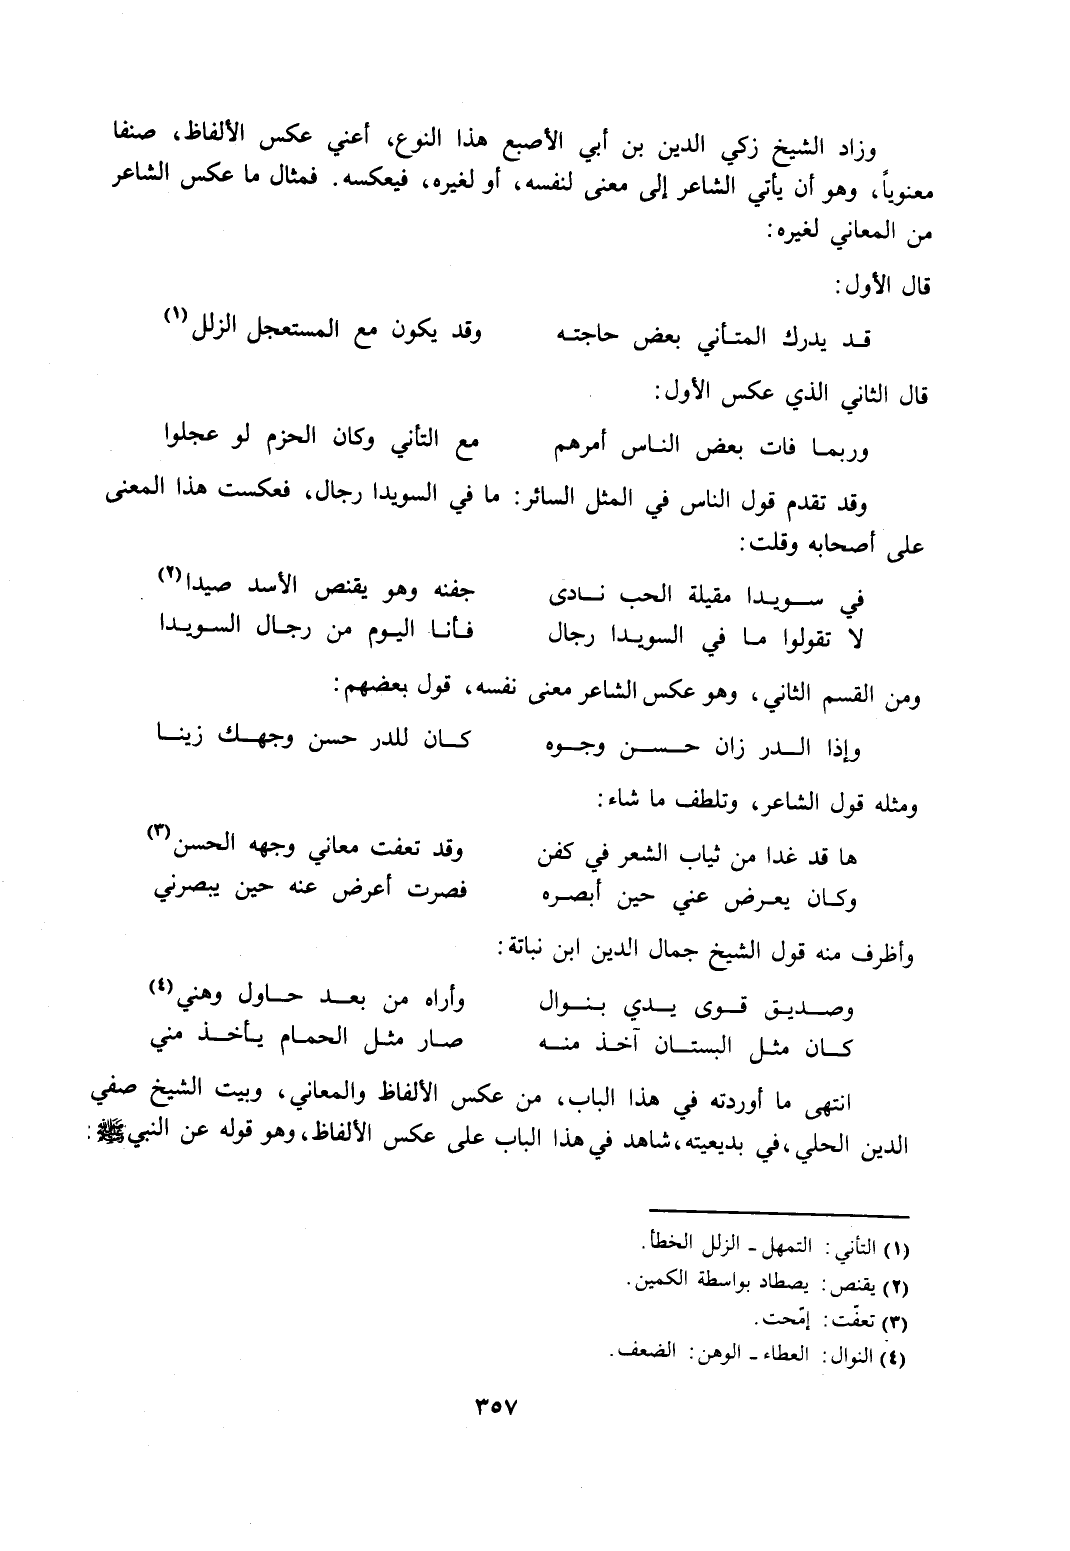 وزاد الشيخ زكي الدين بن أبي الأصبع هذا النوع، أعني عكس الألفاظ، صنفا
معنوياً، وهو أن يأتي الشاعر إلى معنى لنفسه، أو لغيره، فيعكسه. فمثال ما عكس الشاعر
من المعاني لغيره:
قال الأول:
قد يدرك المتأني بعض حاجته وقد يكون مع المستعجل الزلل(١)
قال الثاني الذي عكس الأول:
وربما فات بعض الناس أمرهم مع التأني وكان الحزم لو عجلوا
وقد تقدم قول الناس في المثل السائر: ما في السويدا رجال، فعكست هذا المعنى
على أصحابه وقلت:
في سويدا مقيلة الحب نادى جفنه وهو يقنص الأسد صيدا(٢)
لا تقولوا ما في السويدا رجال فأنا اليوم من رجال السويدا
ومن القسم الثاني، وهو عكس الشاعر معنى نفسه، قول بعضهم:
وإذا الدر زان حسن وجوه كان للدر حسن وجهك زينا
ومثله قول الشاعر، وتلطف ما شاء:
ها قد غدا من ثياب الشعر في كفن وقد تعفت معاني وجهه الحسن(٣)
وكان يعرض عني حين أبصره فصرت أعرض عنه حين يبصرني
وأظرف منه قول الشيخ جمال الدين ابن نباتة:
وصديق قوى يدي بنوال وأراه من بعد حاول وهني(٤)
كان مثل البستان آخذ منه صار مثل الحمام يأخذ مني
انتهى ما أوردته في هذا الباب، من عكس الألفاظ والمعاني، وبيت الشيخ صفي
الدين الحلي، في بديعيته، شاهد في هذا الباب على عكس الألفاظ، وهو قوله عن النبي ﷺ:
(١) التأني: التمهل ـ الزلل الخطأ.
(٢) يقنص: يصطاد بواسطة الكمين.
(٣) تعفّت: إمّحت.
(٤) النوال: العطاء ـ الوهن: الضعف.
٣٥٧